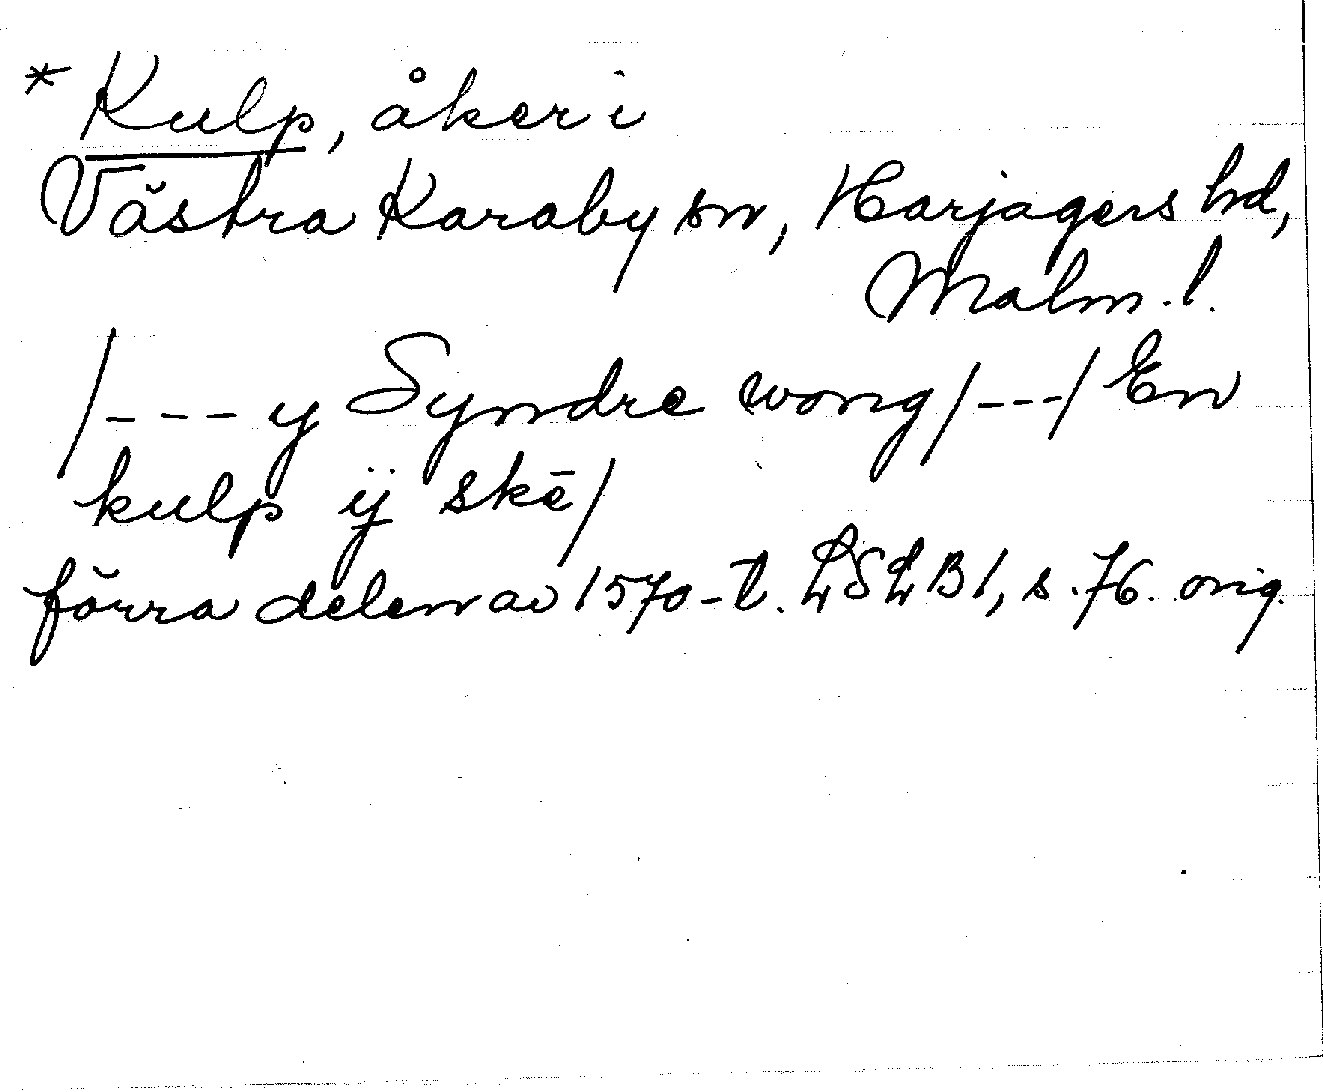 * Kulp, åker i
Västra Karaby sn, Harjagers hd,
Malm. l.
/--- y Syndre wong /---/ En
kulp ÿ skē/
förra delen av 1570-t. LSLB 1, s. 76. orig.